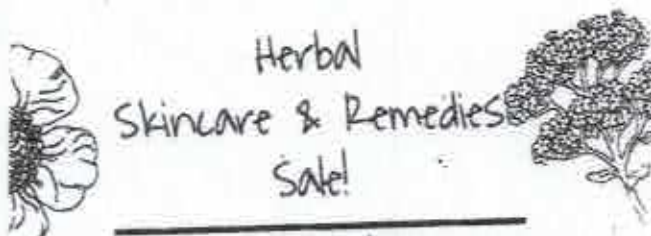 Herbal
Skincare & Remedies
Sale!